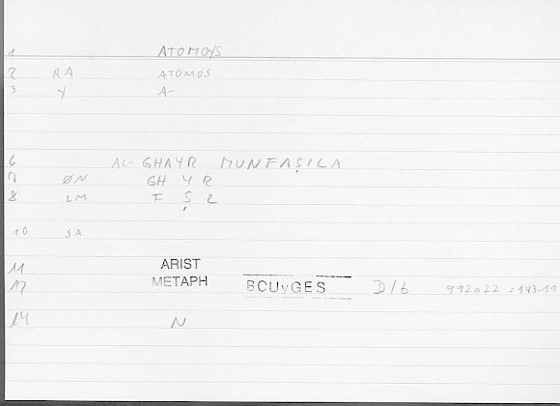 1 ATOMOYS
2 RA ATOMOS
3 Y A-
6 AL-GHAYR MUNFAṢILA
7 ØN GH Y R
8 LM F Ṣ L
10 SA
11 ARIST
12 METAPH BCUyGES D/b 992a22 : 143.11
14 N